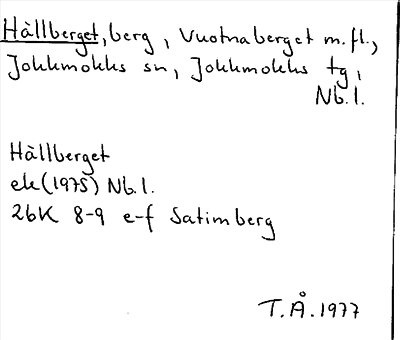 Hällberget, berg, Vuotnaberget m.fl.,
Jokkmokks sn, Jokkmokks tg,
Nb.l.
Hällberget
ek (1975) Nb.l.
26K 8-9 e-f Satimberg
T.Å. 1977